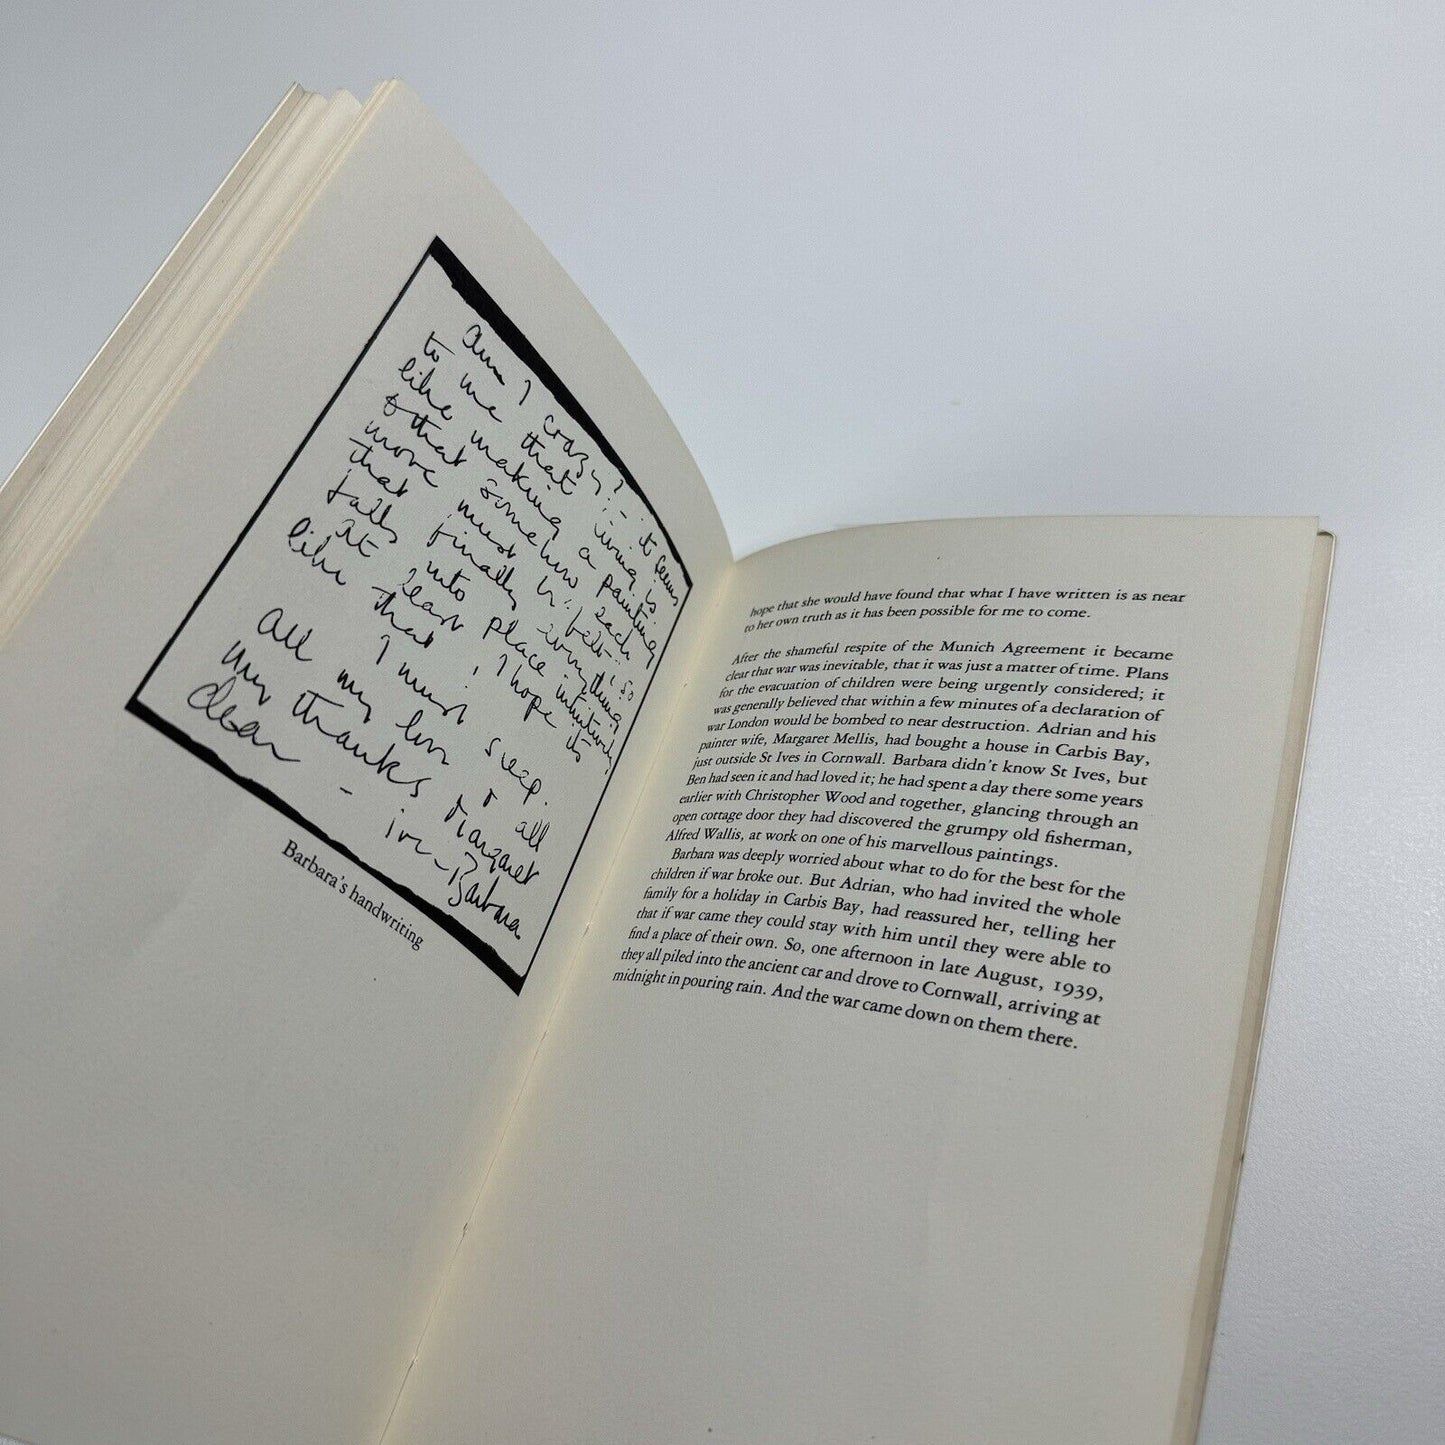 Am I crazy? – it seems
to me that living is
like making a painting
that somehow each
move must be felt so
that finally everything
falls into place intuitively,
At least, I hope its
like that I must sleep.
All my love & all
my thanks & Margaret
dear – ive – Barbara
Barbara's handwriting
hope that she would have found that what I have written is as near
to her own truth as it has been possible for me to come.
After the shameful respite of the Munich Agreement it became
clear that war was inevitable, that it was just a matter of time. Plans
for the evacuation of children were being urgently considered; it
was generally believed that within a few minutes of a declaration of
war London would be bombed to near destruction. Adrian and his
painter wife, Margaret Mellis, had bought a house in Carbis Bay,
just outside St Ives in Cornwall. Barbara didn't know St Ives, but
Ben had seen it and had loved it; he had spent a day there some years
earlier with Christopher Wood and together, glancing through an
open cottage door they had discovered the grumpy old fisherman,
Alfred Wallis, at work on one of his marvellous paintings.
Barbara was deeply worried about what to do for the best for the
children if war broke out. But Adrian, who had invited the whole
family for a holiday in Carbis Bay, had reassured her, telling her
that if war came they could stay with him until they were able to
find a place of their own. So, one afternoon in late August, 1939,
they all piled into the ancient car and drove to Cornwall, arriving at
midnight in pouring rain. And the war came down on them there.